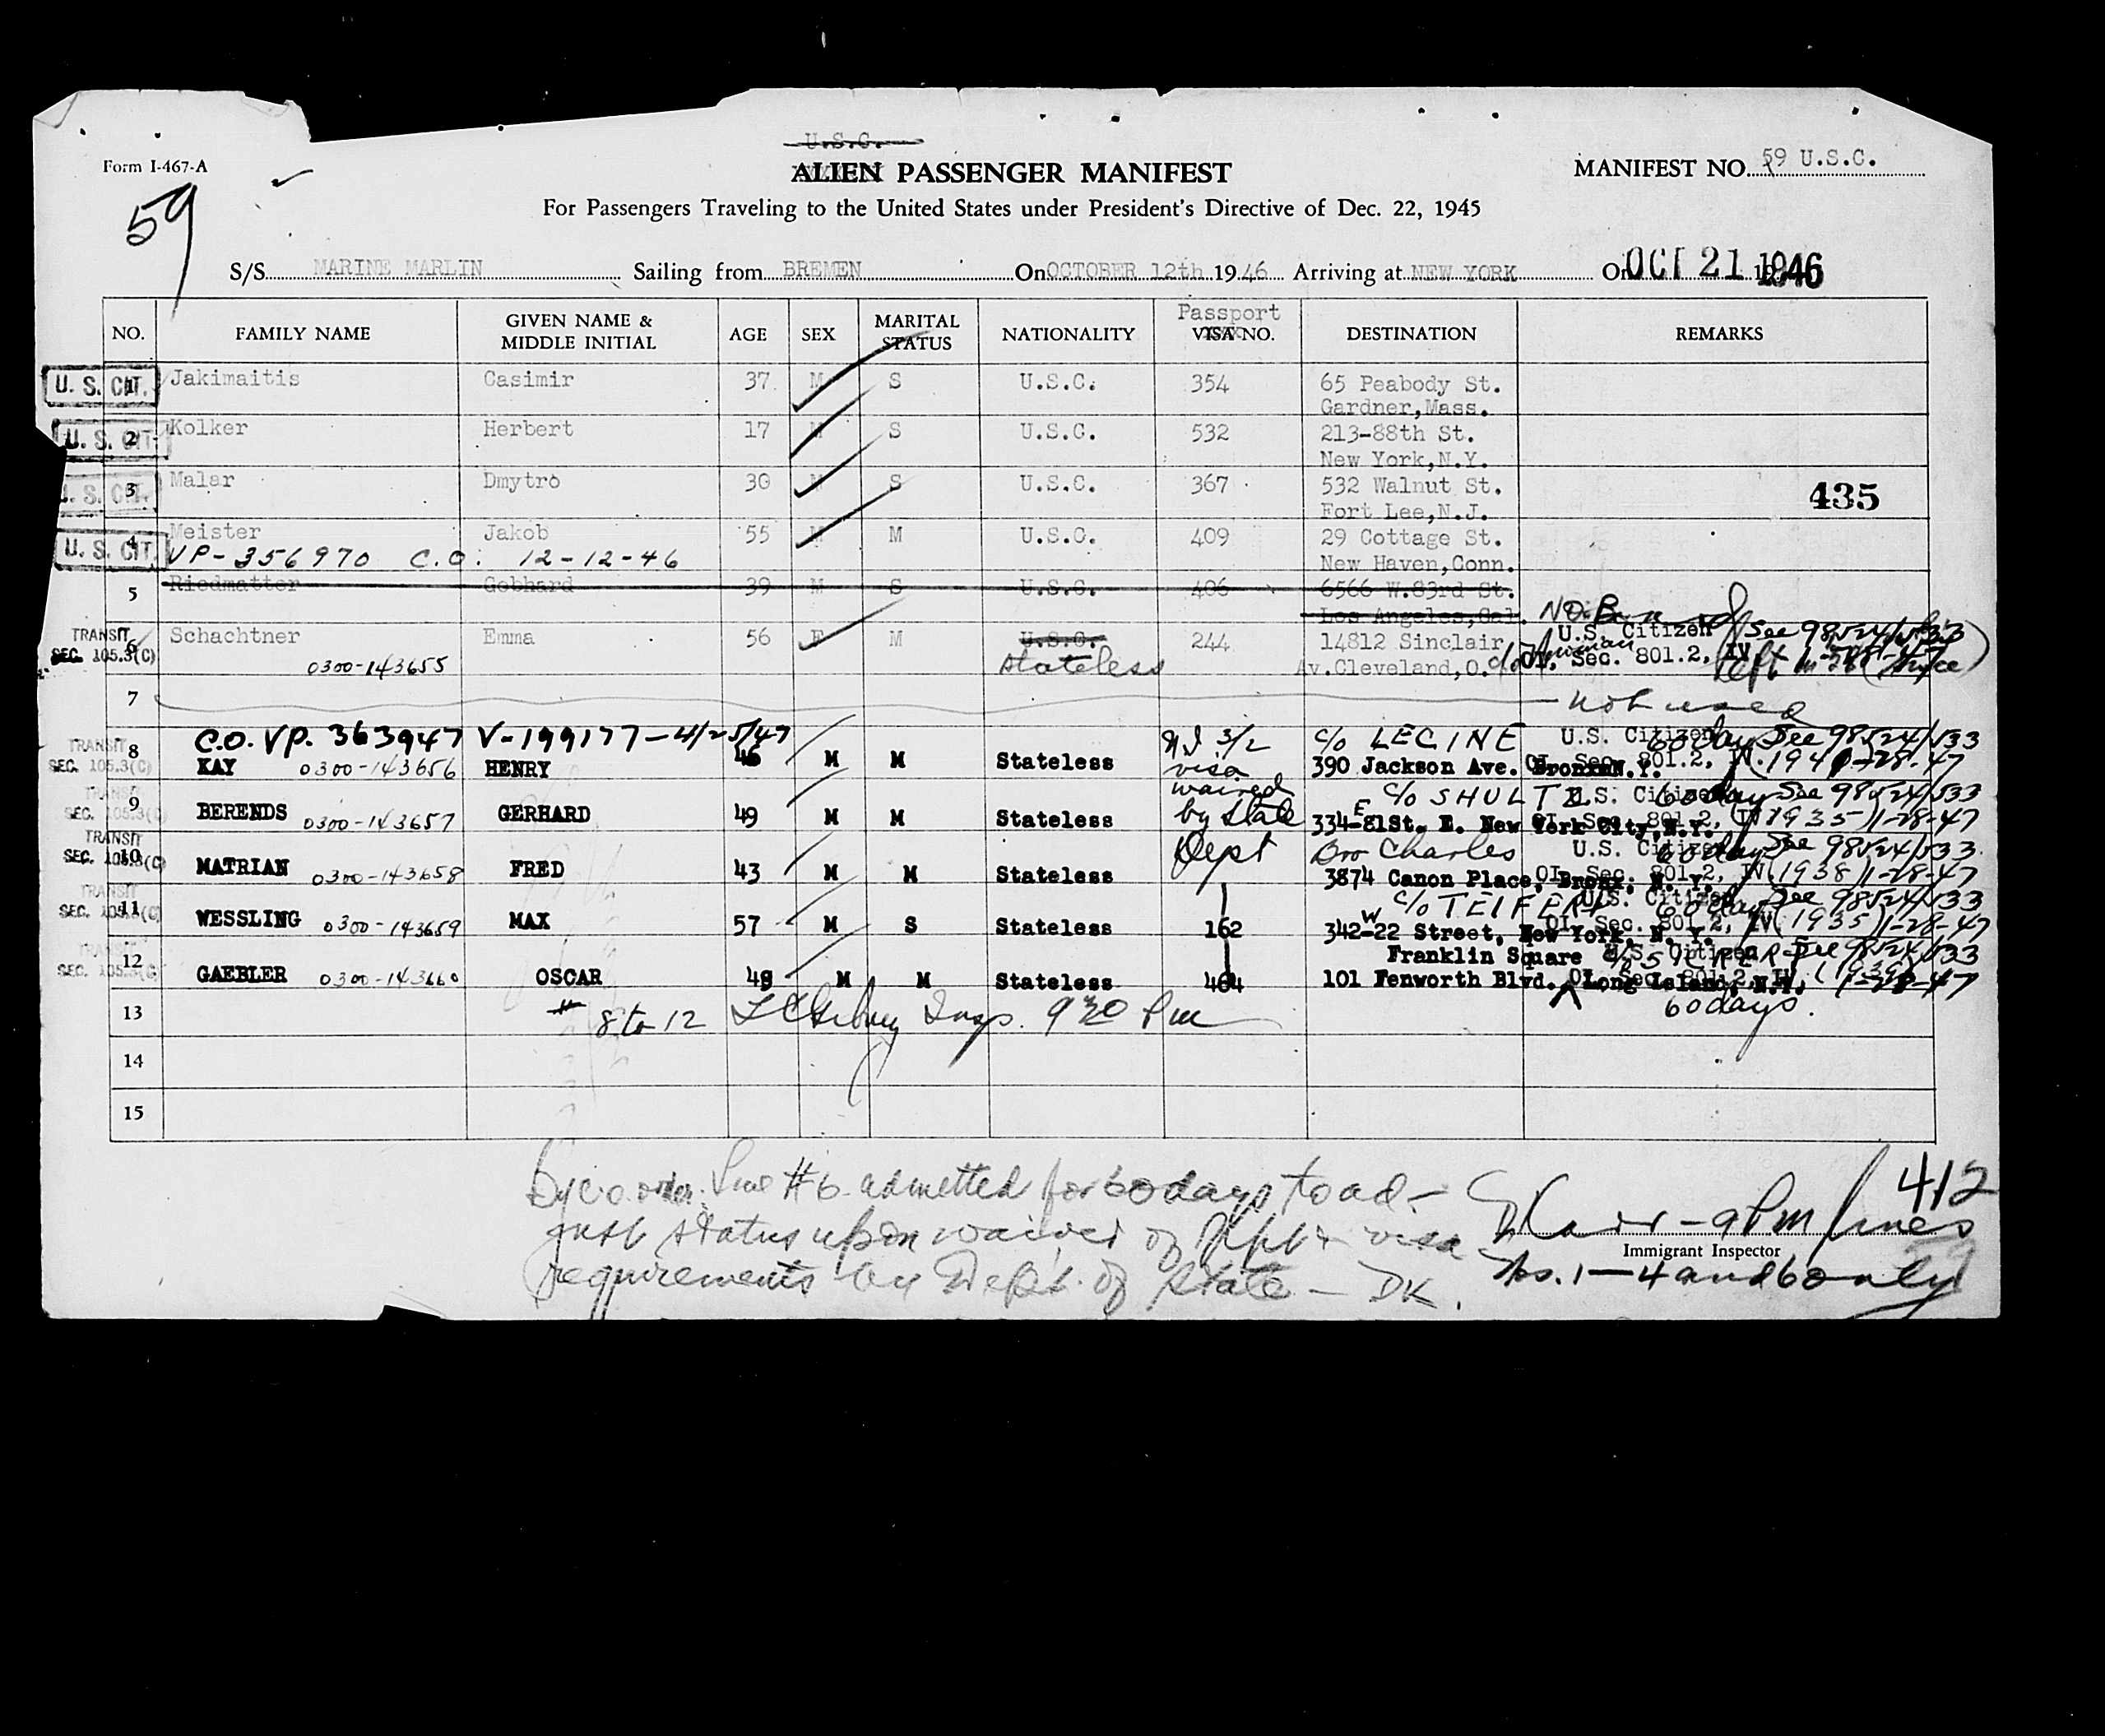 U.S.C.
Form I-467-A
ALIEN PASSENGER MANIFEST
MANIFEST NO. 59 U.S.C.
59
For Passengers Traveling to the United States under President's Directive of Dec. 22, 1945
S/S MARINE MARLIN Sailing from BREMEN On OCTOBER 12th 1946 Arriving at NEW YORK On OCT 21 1946
NO. FAMILY NAME GIVEN NAME & MIDDLE INITIAL AGE SEX MARITAL STATUS NATIONALITY Passport VISA NO. DESTINATION REMARKS
U. S. CIT. 1 Jakimaitis Casimir 37 M S U.S.C. 354 65 Peabody St.
Gardner,Mass.
U. S. CIT. 2 Kolker Herbert 17 M S U.S.C. 532 213-88th St.
New York,N.Y.
U. S. CIT. 3 Malar Dmytro 30 M S U.S.C. 367 532 Walnut St.
Fort Lee,N.J.
435
U. S. CIT. 4 Meister Jakob 55 M M U.S.C. 409 29 Cottage St.
VP-356970 C.O. 12-12-46 New Haven,Conn.
5 Riedmatter Gebhard 39 M S U.S.C. 406 6566 W.83rd St.
Los Angeles,Cal.
TRANSIT SEC. 105.3(C) 6 Schachtner Emma 56 F M U.S.C. 244 14812 Sinclair U.S. Citizen See 98524/533
0300-143655 Stateless Av.Cleveland,O. OI, Sec. 801.2, IV
7 not used
C.O. VP. 363947 V-199177-4/25/47 c/o LECINE U.S. Citizen 60 days See 98524/533
TRANSIT SEC. 105.3(C) 8 KAY 0300-143656 HENRY 46 M M Stateless visa 390 Jackson Ave. Bronx N.Y. OI, Sec. 801.2, IV 1-28-47
waived c/o SHULTZ U.S. Citizen 60 days See 98524/533
TRANSIT SEC. 105.3(C) 9 BERENDS 0300-143657 GERHARD 49 M M Stateless by State 334-E 81St. E. New York City,N.Y. OI, Sec. 801.2, IV (1935) 1-28-47
Dept Bro Charles U.S. Citizen 60 days See 98524/533
TRANSIT SEC. 105.3(C) 10 MATRIAN 0300-143658 FRED 43 M M Stateless 3874 Canon Place, Bronx, N. Y. OI, Sec. 801.2, IV (1938) 1-28-47
c/o TEIFERT U.S. Citizen 60 days See 98524/533
TRANSIT SEC. 105.3(C) 11 WESSLING 0300-143659 MAX 57 M S Stateless 162 342-W 22 Street, New York, N. Y. OI, Sec. 801.2, IV (1935) 1-28-47
Franklin Square U.S. Citizen See 98524/533
TRANSIT SEC. 105.3(C) 12 GAEBLER 0300-143660 OSCAR 48 M M Stateless 464 101 Fenworth Blvd. Long Island, N.Y. OI, Sec. 801.2, IV, 1-28-47
60 days.
13 # 8 to 12 Insp. 9 30 Pm
14
15
order. Line #6 admitted for 60 days to ad-
just status upon waiver of Ppt & visa
requirements by Dept. of State - DK.
412
9 Pm lines
Immigrant Inspector
Nos. 1-4 and 6 only